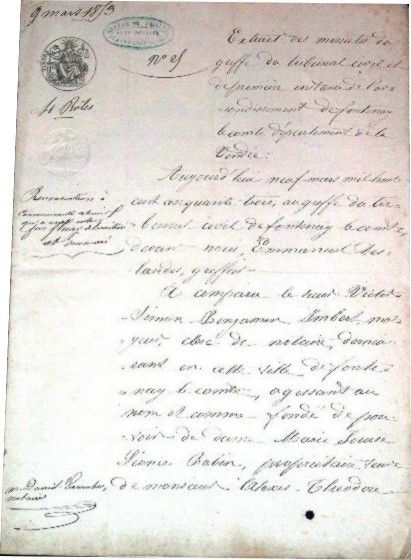 9 mars 1853
N° 25
Extrait des minutes du
greffe du tribunal civil et
de première instance de l'ar-
-rondissement de fontenay
le comte département de la
Vendée.
4 Roles
Aujourd'hui neuf mars mil huit
cent cinquante trois, au greffe du tri-
bunal civil de fontenay le comte
devant nous, Emmanuel Des-
landes, greffier
Renonciation à
Communauté
est
A comparu le sieur Victor
Simon Benjamin Imbert, ma-
jeur, clerc de notaire, demeu-
rant en cette ville de fonte-
nay le comte, agissant au
nom et comme fondé de pou-
voir de dame Marie Louise
Robin, propriétaire, veuve
de monsieur Alexis Théodore
m. Daniel
notaire